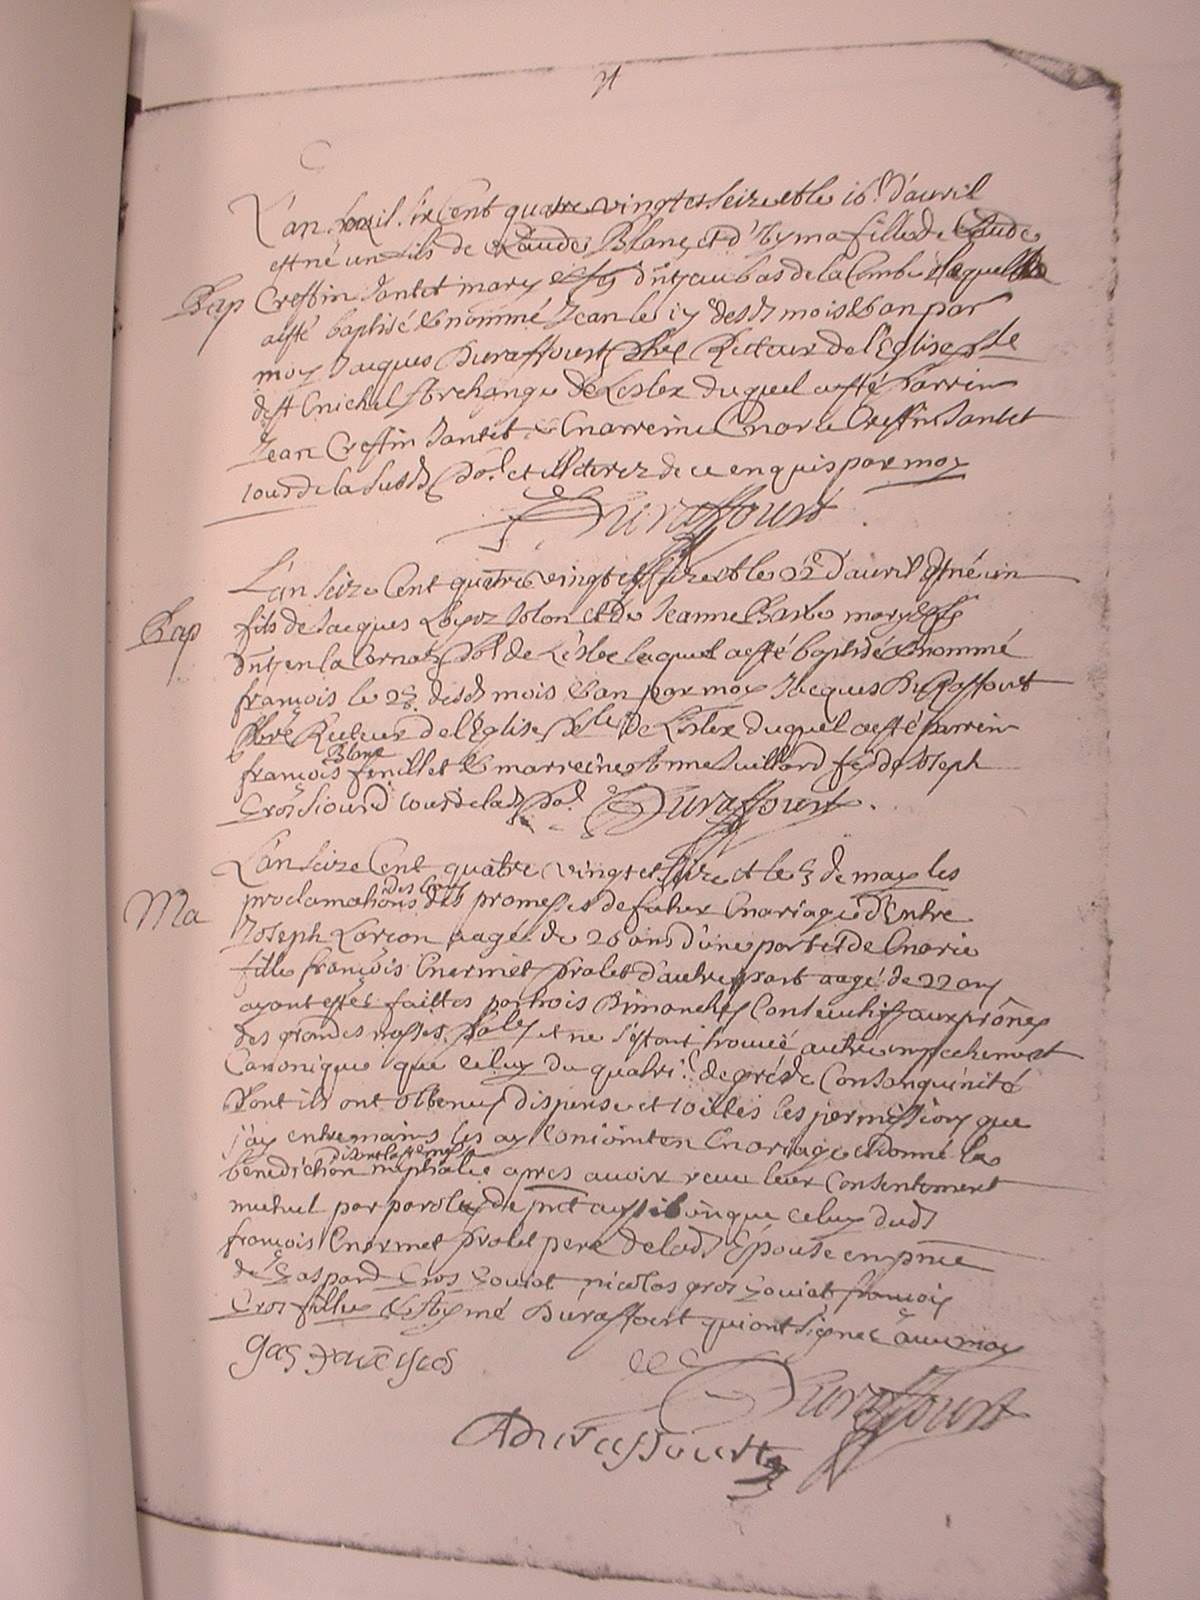 L'an mil six Cent quatre vingt et seize et le 16.e d'avril
est né un fils de Claude Blanc et d'Aymé fille de Claude
Bap Creffin Jantet mary & fe d'ntz au bas de la Combe lequel
a esté baptisé & nommé Jean le 17 desd mois & an par
moy Jacques Duraffourt pbre Recteur de l'Eglise plle
de st Michel Archange de Leslex duquel a esté Parrin
Jean Creffin Jantet & Marreine Marie Creffin Jantet
tous de la susd po.e et illiterez de ce enquis par moy
Duraffourt
L'an seize Cent quatre vingt et seize et le 22.e d'avril est né un
Bap fils de Jacques Jolon et de Jeanne Barbe mary & fe
d'ntz en la po.e de Leslex lequel a esté baptisé & nommé
françois le 23 desd mois & an par moy Jacques Duraffourt
pbre Recteur de l'Eglise plle de Leslex duquel a esté parrin
Blanc
françois feuillet & marreine Anne Vuillard fe de Joseph
Gros tous de lad po.e Duraffourt
L'an seize Cent quatre vingt et seize et le 3 de may les
des bans
Ma proclamations des promesses de futur Mariage d'Entre
Joseph Larçon aagé de 26 ans d'une part et de Marie
fille françois Mermet prolet d'autre part aagé de 22 ans
ayant estés faittes par trois Dimanches Consecutifs aux prônes
des grandes messes plles et ne s'estant trouvé autre empechement
Canonique que celuy du quatri.e degré de Consanguinité
dont ils ont obtenus dispense et toutes les permissions que
j'ay entre mains les ay Conioint en Mariage et donné la
benediction nuptiale apres avoir receu leur Consentement
mutuel par paroles de pnt aussi bien que celuy dud
françois Mermet prolet pere de lad Epouse en pnce
de Gaspard Gros Goviat nicolas gros Goviat françois
Gros fillie & Aymé Duraffourt qui ont signes avec moy
Duraffourt
ADuraffourt